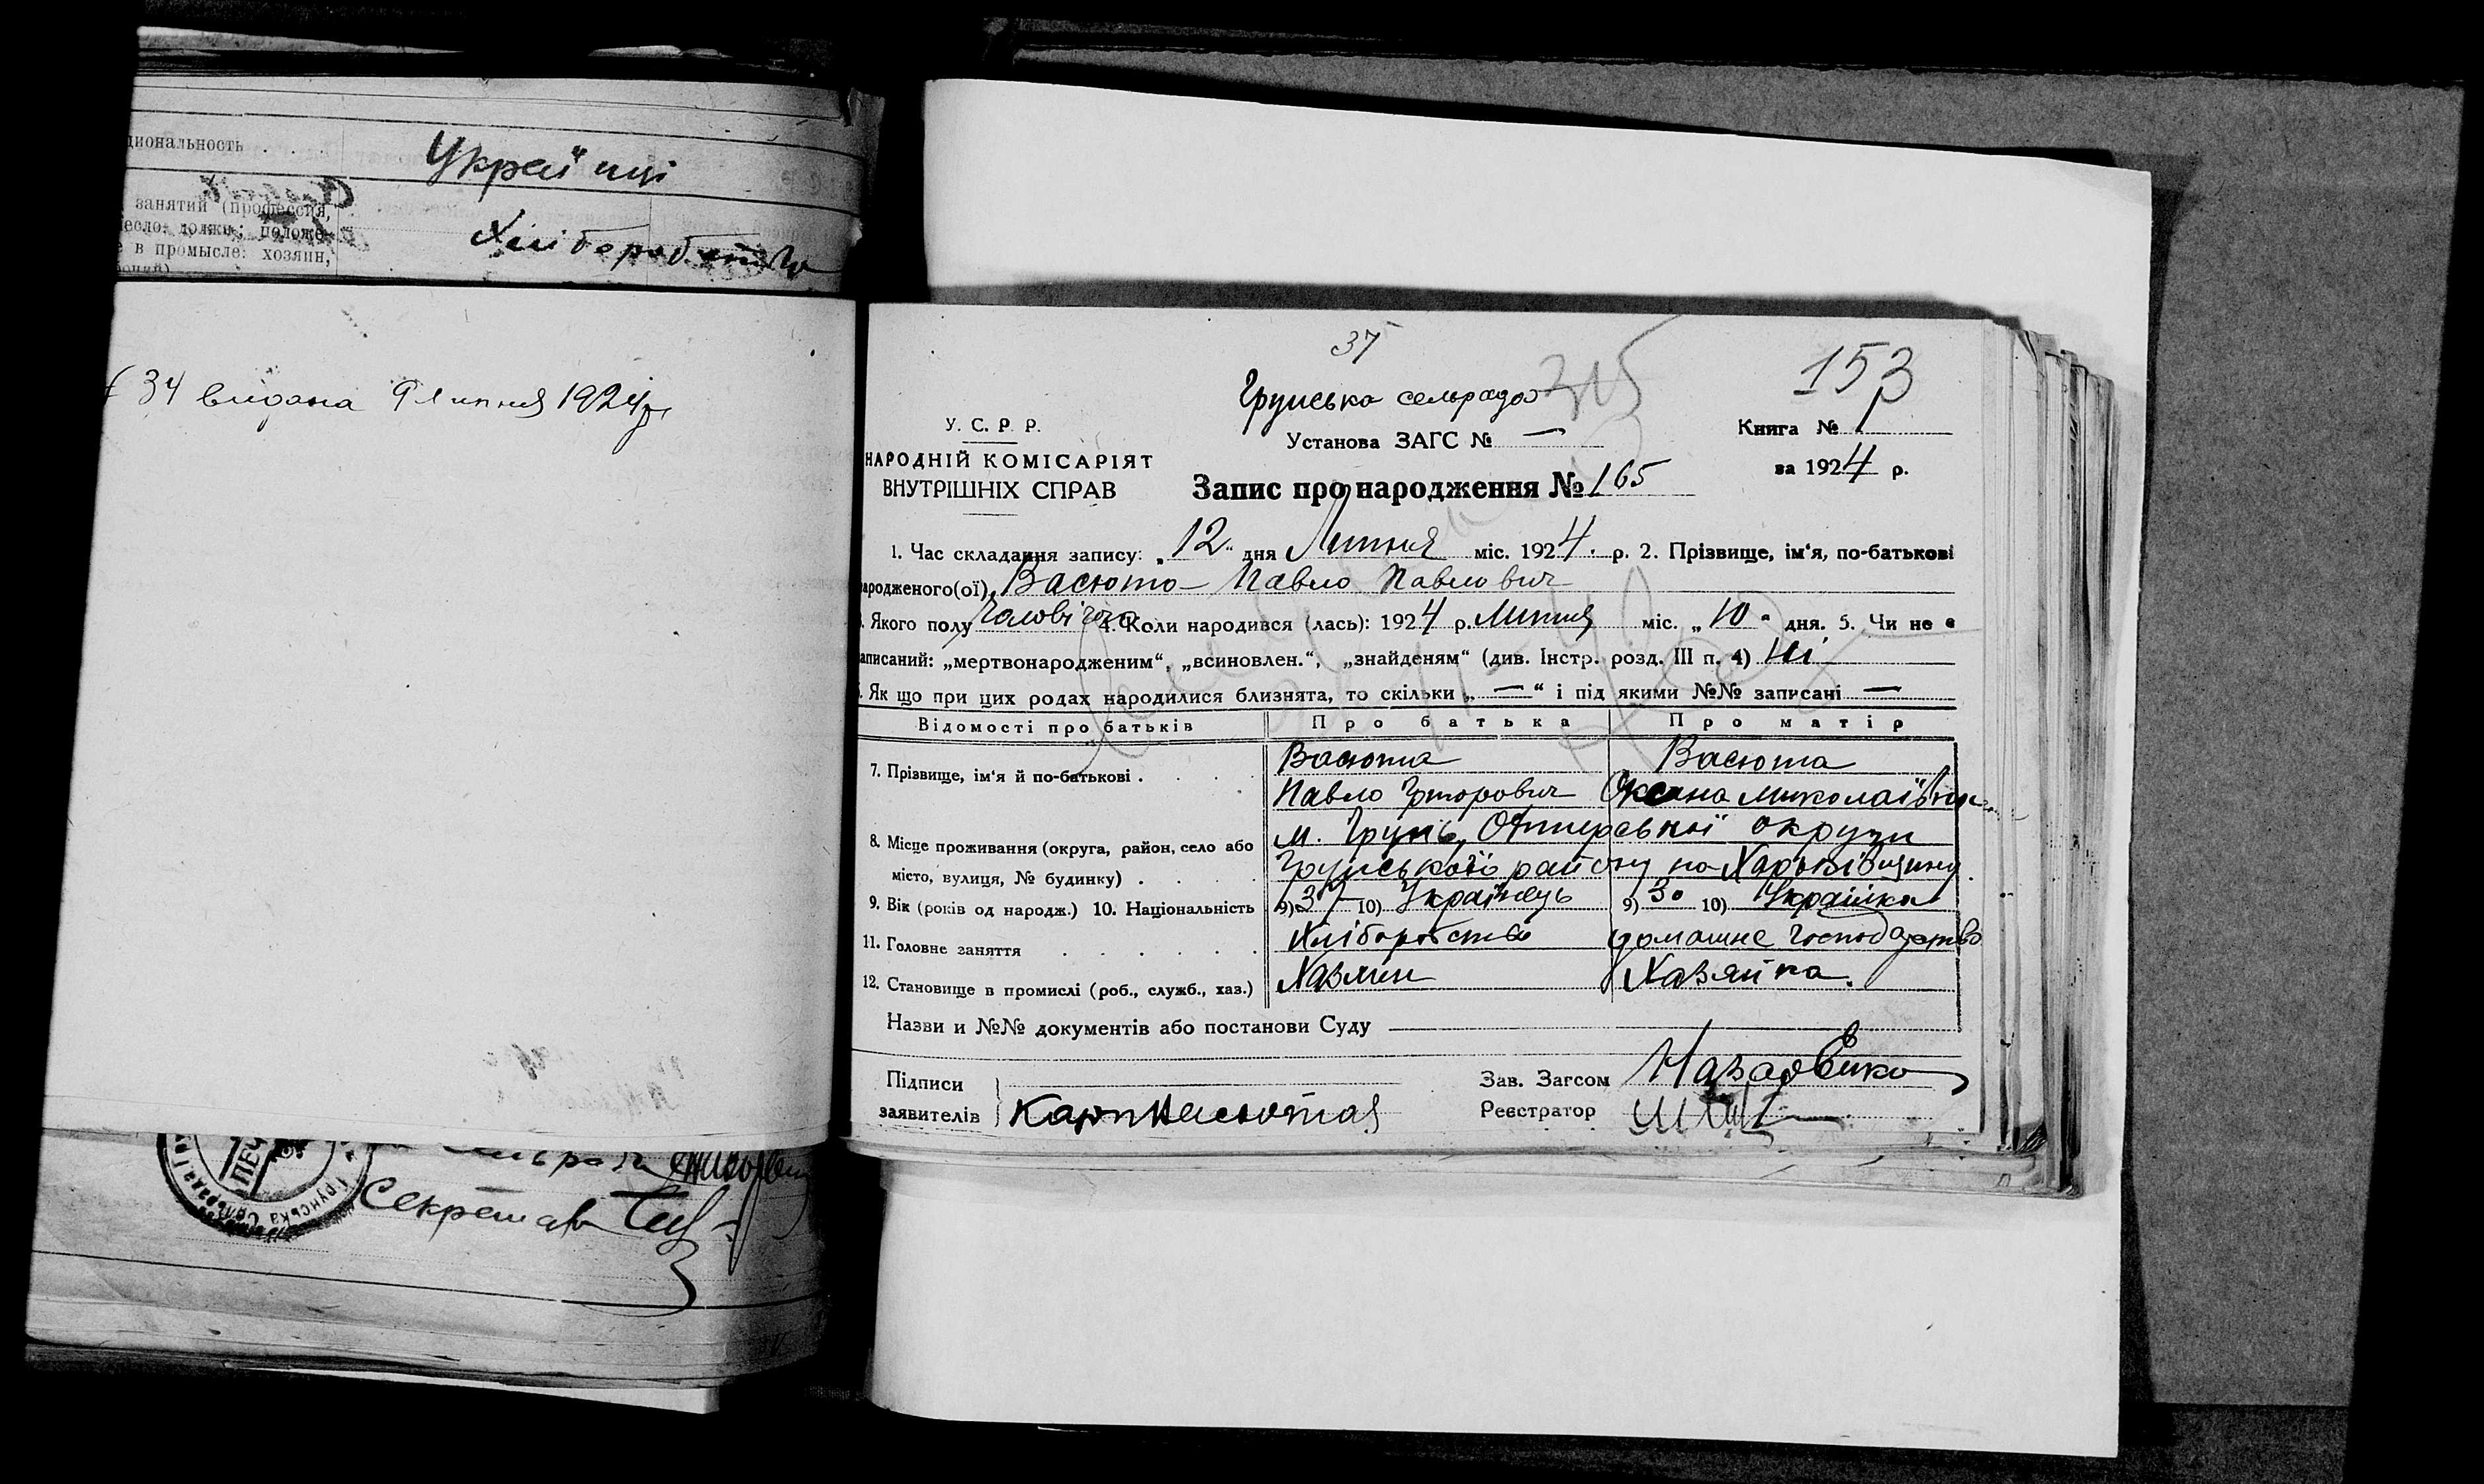 циональность . . .
Українці
занятий (профессия,
есло: должн.; положе-
е в промысле: хозяин,
Хліборобство
34 видана 9 липня 1924 р
Секретар
37
315
153
Грунська сельрада
У. С. Р. Р.
Установа ЗАГС № —
Книга № 1
НАРОДНІЙ КОМІСАРІЯТ
ВНУТРІШНІХ СПРАВ
за 1924 р.
Запис про народження № 165
1. Час складання запису: „12“ дня Липня міс. 1924. р. 2. Прізвище, ім'я, по-батькові
ародженого(ої) Васюта Павло Павлович
Якого полу чоловічого 4. Коли народився (лась): 1924 р. Липня міс. „10“ дня. 5. Чи не є
аписаний: „мертвонародженим“, „всиновлен.“, „знайденям“ (див. Інстр. розд. III п. 4) Ні
Як що при цих родах народилися близнята, то скільки „—“ і під якими №№ записані —
Відомості про батьків Про батька Про матір
7. Прізвище, ім'я й по-батькові . . . . Васюта Васюта
Павло Григорович Оксана Миколаївна
8. Місце проживання (округа, район, село або м. Грунь, Охтирської округи
місто, вулиця, № будинку) . . . . Грунського району на Харьківщині.
9. Вік (років од народж.) 10. Національність 9) 37 10) Українець 9) 30 10) Українка
11. Головне заняття . . . . . . Хліборобство домашне господарство
12. Становище в промислі (роб., служб., хаз.) Хазяин Хазяйка.
Назви и №№ документів або постанови Суду
Підписи
Зав. Загсом Назаренко
заявителів Карп Васюта
Реєстратор
ПЕЧ
Грунська Сельрада